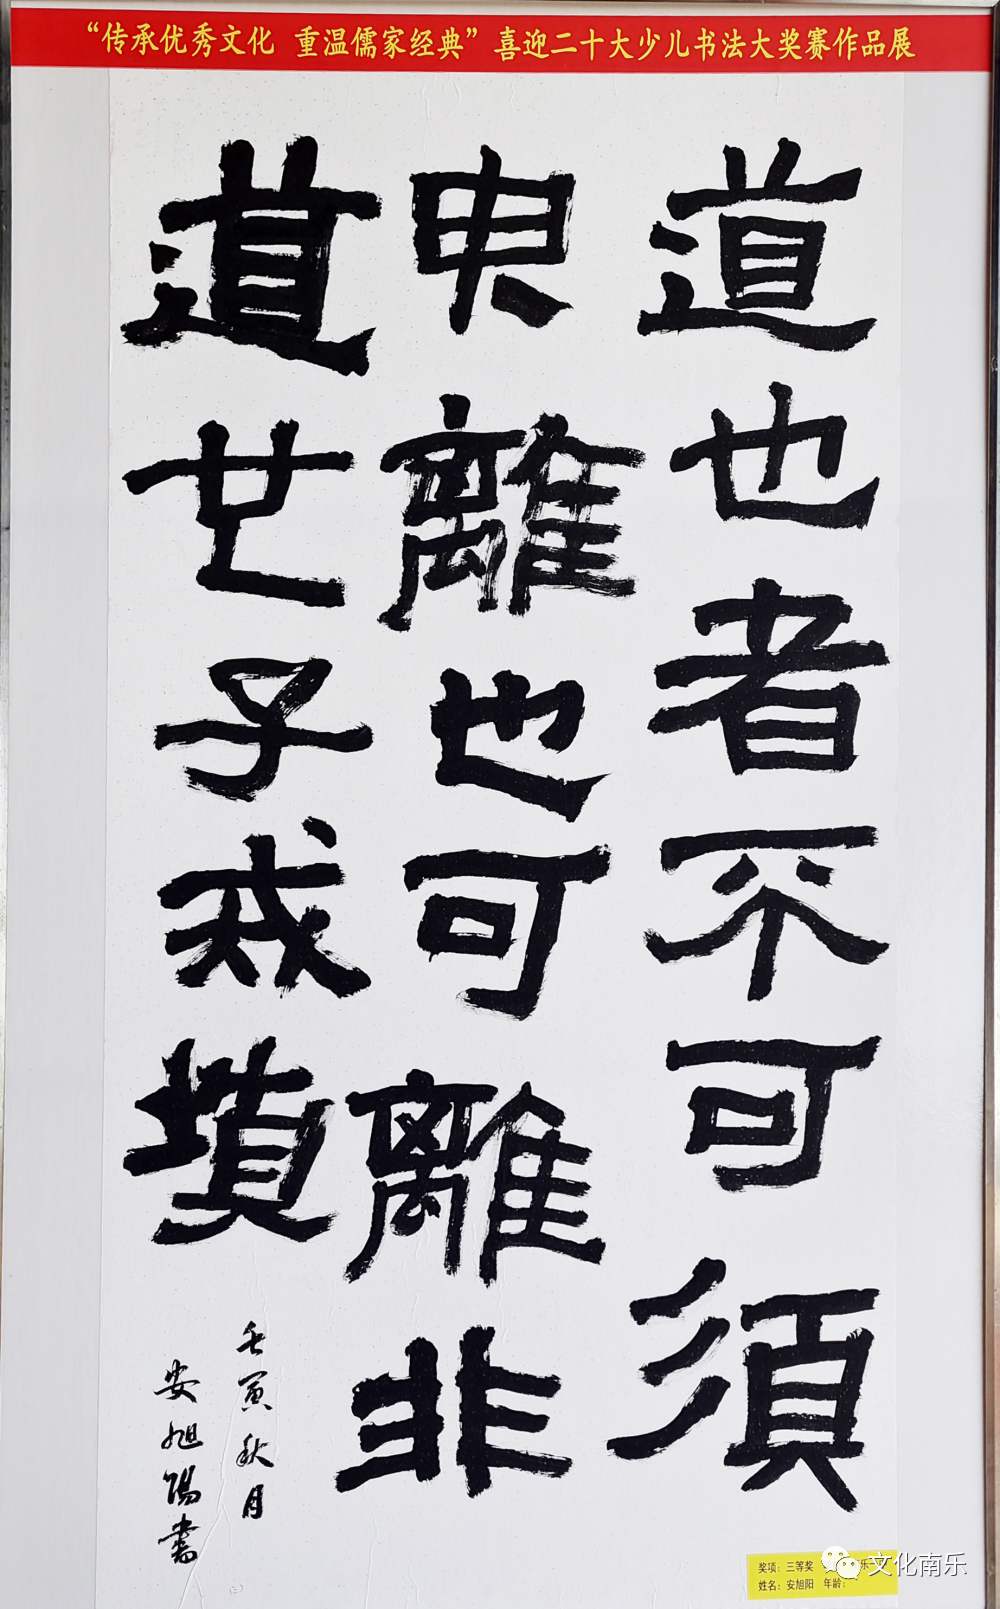 “传承优秀文化 重温儒家经典”喜迎二十大少儿书法大奖赛作品展
道也者不可須
臾離也可離非
道世子戒墳
壬寅秋月
安旭陽書
奖项：三等奖
姓名：安旭阳 年龄：
文化南乐